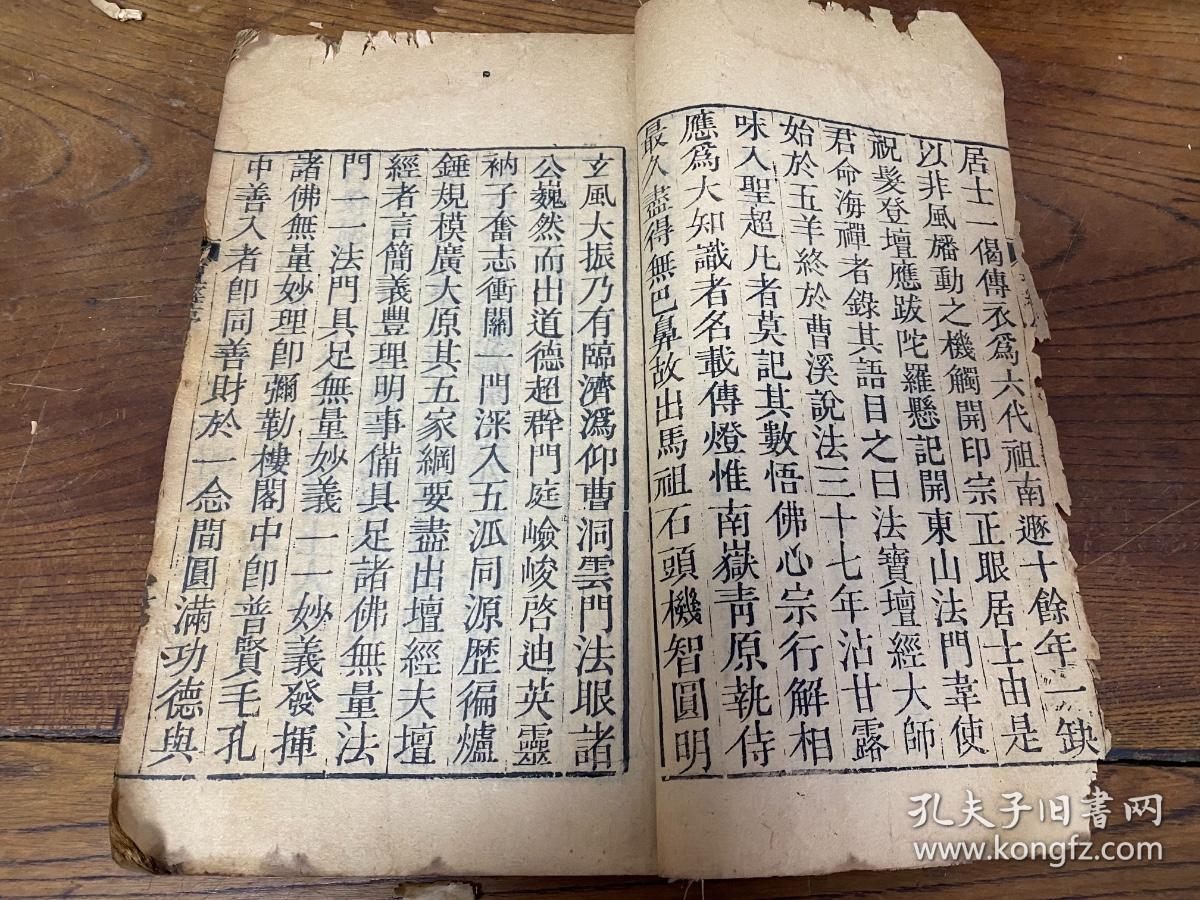 居士一偈傳衣爲六代祖南遯十餘年一
以非風旛動之機觸開印宗正眼居士由是
祝髮登壇應跋陀羅懸記開東山法門韋使
君命海禪者錄其語目之曰法寶壇經大師
始於五羊終於曹溪說法三十七年沾甘露
味入聖超凡者莫記其數悟佛心宗行解相
應爲大知識者名載傳燈惟南嶽靑原執侍
最久盡得無巴鼻故出馬祖石頭機智圓明
玄風大振乃有臨濟潙仰曹洞雲門法眼諸
公巍然而出道德超群門庭嶮峻啓迪英靈
衲子奮志衝關一門深入五派同源歷徧爐
錘規模廣大原其五家綱要盡出壇經夫壇
經者言簡義豐理明事備具足諸佛無量法
門一一法門具足無量妙義一一妙義發揮
諸佛無量妙理卽彌勒樓閣中卽普賢毛孔
中善入者卽同善財於一念間圓滿功德與
孔夫子旧書网
www.kongfz.com